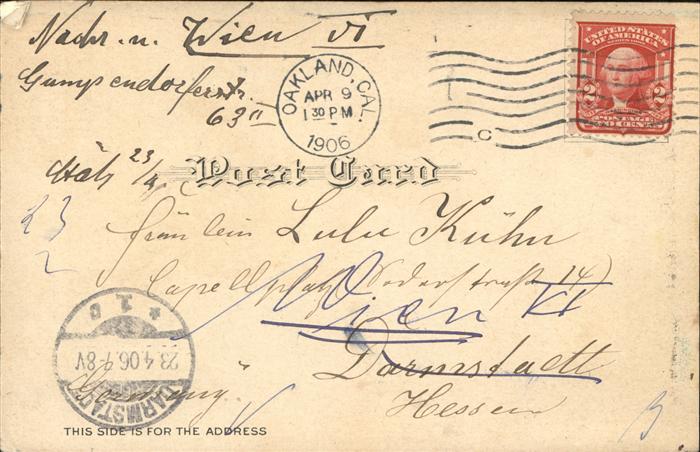 Nachr. n. Wien VI
Gumpendorferstr.
63 II
OAKLAND, CAL.
APR 9
1 30 PM
1906
UNITED STATES
OF AMERICA
2 2
POSTAGE
TWO CENTS
C
23/4
Post Card
Fräulein Lulu Kühn
Capellplatz 14)
Wien VI
Darmstadt
Germany
Hessen
DARMSTADT
* 1 c
23.4.06.7-8V
THIS SIDE IS FOR THE ADDRESS